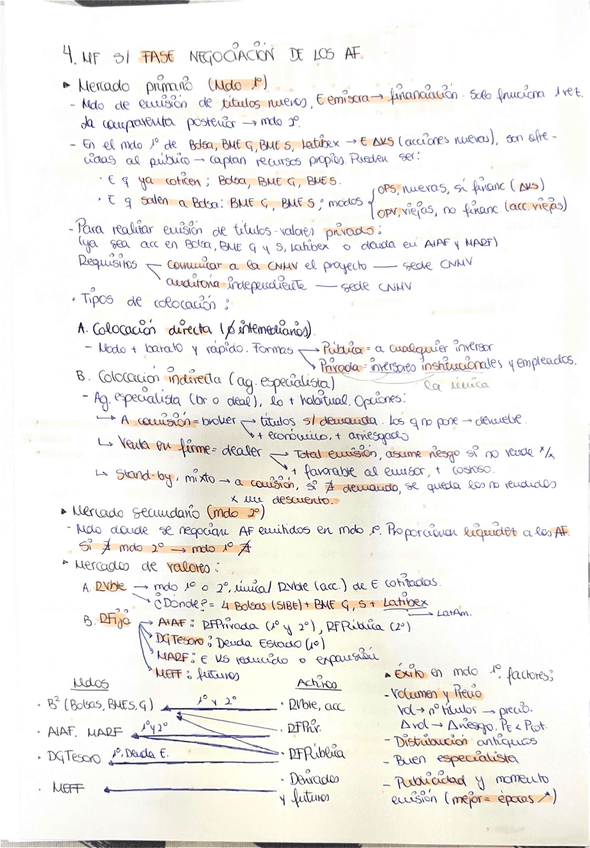 4. MF S/ FASE NEGOCIACIÓN DE LOS AF.
▸ Mercado primario (Mdo 1º)
- Mdo de emisión de títulos nuevos, E emisora → financiación. Solo funciona 1 vez.
La compraventa posterior → mdo 2º.
- En el mdo 1º de Bolsa, BME G, BME S, Latibex → E ΔKS (acciones nuevas), son ofre-
cidas al público → captan recursos propios. Pueden ser:
· E q ya coticen; Bolsa, BME G, BME S.
· E q salen a Bolsa: BME G, BME S; modos
OPS, nuevas, sí financ (ΔKS)
OPV, viejas, no financ (acc. viejas)
- Para realizar emisión de títulos-valores privados:
(ya sea acc en Bolsa, BME G y S, Latibex o deuda en AIAF y MARF)
Requisitos
comunicar a la CNMV el proyecto — sede CNMV
auditoría independiente — sede CNMV
· Tipos de colocación:
A. Colocación directa (∄ intermediarios).
- Modo + barato y rápido. Formas
Pública = a cualquier inversor
Privada = inversores institucionales y empleados.
la única
B. Colocación indirecta (ag. especialista)
- Ag. especialista (br o deal), lo + habitual. Opciones:
↳ A comisión = broker
títulos s/ demanda. Los q no pone → devuelve.
+ económico, + arriesgado
↳ Venta en firme = dealer
Total emisión, asume riesgo si no vende x/x
+ favorable al emisor, + costoso.
↳ Stand-by, mixto → a comisión, si ∄ demanda, se queda los no vendidos
x un descuento.
▸ Mercado secundario (mdo 2º)
- Mdo donde se negocian AF emitidos en mdo 1º. Proporcionan liquidez a los AF.
Si ∄ mdo 2º → mdo 1º ∄
▸ Mercados de valores:
A. RVble → mdo 1º o 2º, única/ RVble (acc.) de E cotizadas.
¿Dónde? = 4 Bolsas (SIBE) + BME G, S + Latibex
LatAm.
B. RFija
AIAF: RFPrivada (1º y 2º), RFPública (2º)
DGTesoro: Deuda Estado (1º)
MARF: E KS reducido o expansión
MEFF: futuros
Mdos
Activos
· Bª (Bolsas, BMES, G)
1º y 2º
· RVble, acc
· AIAF, MARF
1º y 2º
· RFPriv.
· DGTesoro
1º. Deuda E.
· RFPública
· MEFF
· Derivados
y futuros
▸ Éxito en mdo 1º, factores;
- Volumen y Precio
Vol → nº títulos → precio.
Δvol → Δriesgo. PE < Pcot.
- Distribución antiguos
- Buen especialista
- Publicidad y momento
emisión (mejor = épocas ↗)